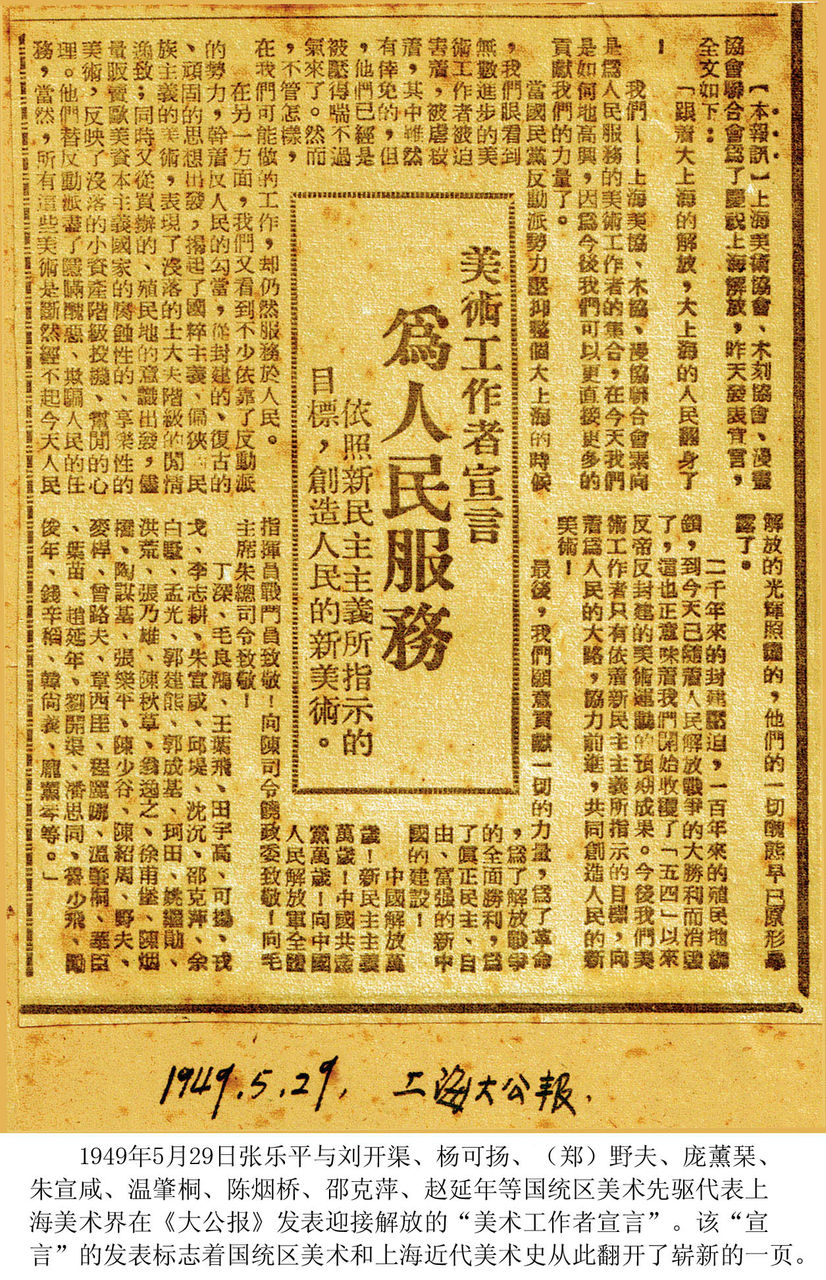 【本報訊】上海美術協會、木刻協會、漫畫
協會聯合會爲了慶祝上海解放,昨天發表宣言,
全文如下:
「跟着大上海的解放,大上海的人民翻身了
!
我們——上海美協、木協、漫協聯合會素向
是爲人民服務的美術工作者的集合,在今天我們
是如何地高興,因爲今後我們可以更直接更多的
貢獻我們的力量了。
當國民黨反動派勢力壓抑整個大上海的時候
,我們眼看到
無數進步的美
術工作者被迫
害着,被虐殺
着,其中雖然
有倖免的,但
,他們已經是
被壓得喘不過
氣來了。然而
,不管怎樣,
在我們可能做的工作,却仍然服務於人民。
在另一方面,我們又看到不少依靠了反動派
的勢力,幹着反人民的勾當,從封建的、復古的
、頑固的思想出發,揚起了國粹主義、偏狹的民
族主義的美術,表現了沒落的士大夫階級的閒情
逸致;同時又從買辦的、殖民地的意識出發,儘
量販賣歐美資本主義國家的腐蝕性的、享樂性的
美術,反映了沒落的小資產階級投機、的心
理。他們替反動派盡了隱瞞醜惡、欺騙人民的任
務,當然,所有這些美術是斷然經不起今天人民
美術工作者宣言
爲人民服務
依照新民主主義所指示的
目標,創造人民的新美術。
解放的光輝照耀的,他們的一切醜態早已原形畢
露了。
二千年來的封建壓迫,一百年來的殖民地枷
鎖,到今天已隨着人民解放戰爭的大勝利而消滅
了,這也正意味着我們開始收穫了「五四」以來
反帝反封建的美術運動的預期成果。今後我們美
術工作者只有依着新民主主義所指示的目標,向
着爲人民的大路,協力前進,共同創造人民的新
美術!
最後,我們願意貢獻一切的力量,爲了革命
,爲了解放戰爭
的全面勝利,爲
了眞正民主、自
由、富强的新中
國的建設!
中國解放萬
歲!新民主主義
萬歲!中國共產
黨萬歲!向中國
人民解放軍全體
指揮員戰鬥員致敬!向陳司令饒政委致敬!向毛
主席朱總司令致敬!
丁深、毛良鴻、王葉飛、田宇高、可揚、戎
戈、李志耕、朱宣咸、邱堤、沈沉、邵克萍、余
白墅、孟光、郭建熊、郭成基、珂田、姚繼勛、
洪荒、張乃雄、陳秋草、翁逸之、徐甫堡、陳烟
橋、陶謀基、張樂平、陳少谷、陳紹周、野夫、
麥桿、曾路夫、章西厓、程麗娜、溫肇桐、華臣
、葉苗、趙延年、劉開渠、潘思同、魯少飛、勵
俊年、錢辛稻、韓尙義、龐薰琹等。」
1949.5.29. 上海大公報.
1949年5月29日张乐平与刘开渠、杨可扬、(郑)野夫、庞薰琹、
朱宣咸、温肇桐、陈烟桥、邵克萍、赵延年等国统区美术先驱代表上
海美术界在《大公报》发表迎接解放的“美术工作者宣言”。该“宣
言”的发表标志着国统区美术和上海近代美术史从此翻开了崭新的一页。